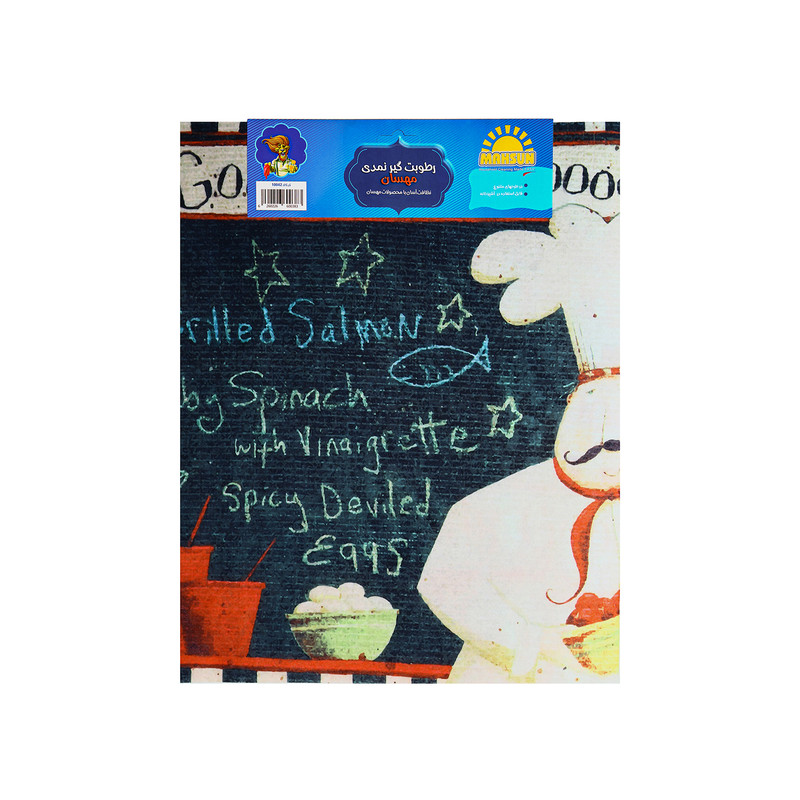 MAHSUN
رطوبت گیر نمدی
مهسان
نظافت آسان با محصولات مهسان
در طرحهای متنوع
G.O.
OOO
Grilled Salmon
by Spinach
with Vinaigrette
Spicy Deviled
Eggs